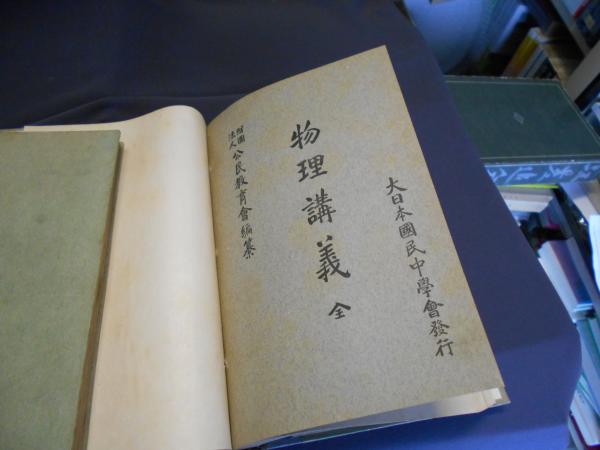 大日本國民中學會發行
物理講義 全
財團法人 公民教育會編纂